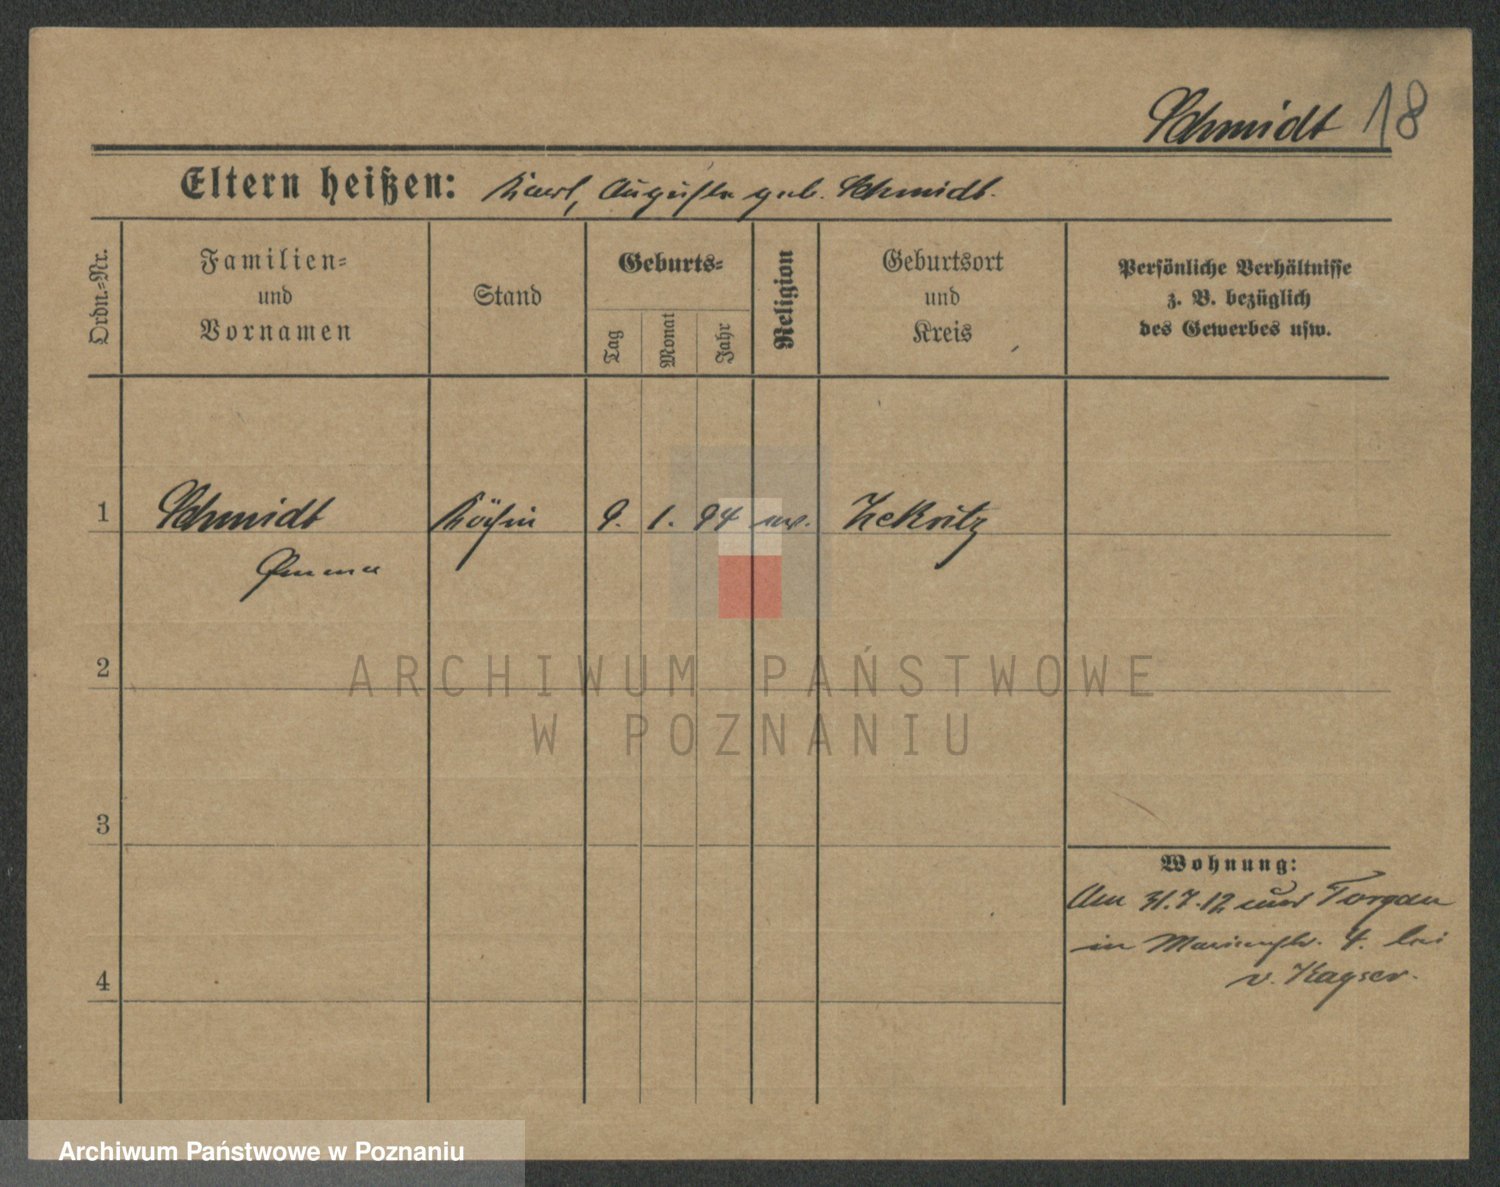 Schmidt 18
Eltern heißen: Karl, Auguste geb. Schmidt.
Ordn.-Nr.
Familien-
und
Vornamen
Stand
Geburts-
Tag
Monat
Jahr
Religion
Geburtsort
und
Kreis
Persönliche Verhältnisse
z. B. bezüglich
des Gewerbes usw.
1 Schmidt Köchin 9. 1. 94 ev. Zekritz
Emma
2
ARCHIWUM PAŃSTWOWE
W POZNANIU
3
Wohnung:
Am 31.7.12 von Torgau
in Marienstr. 4. bei
v. Kayser.
4
Archiwum Państwowe w Poznaniu